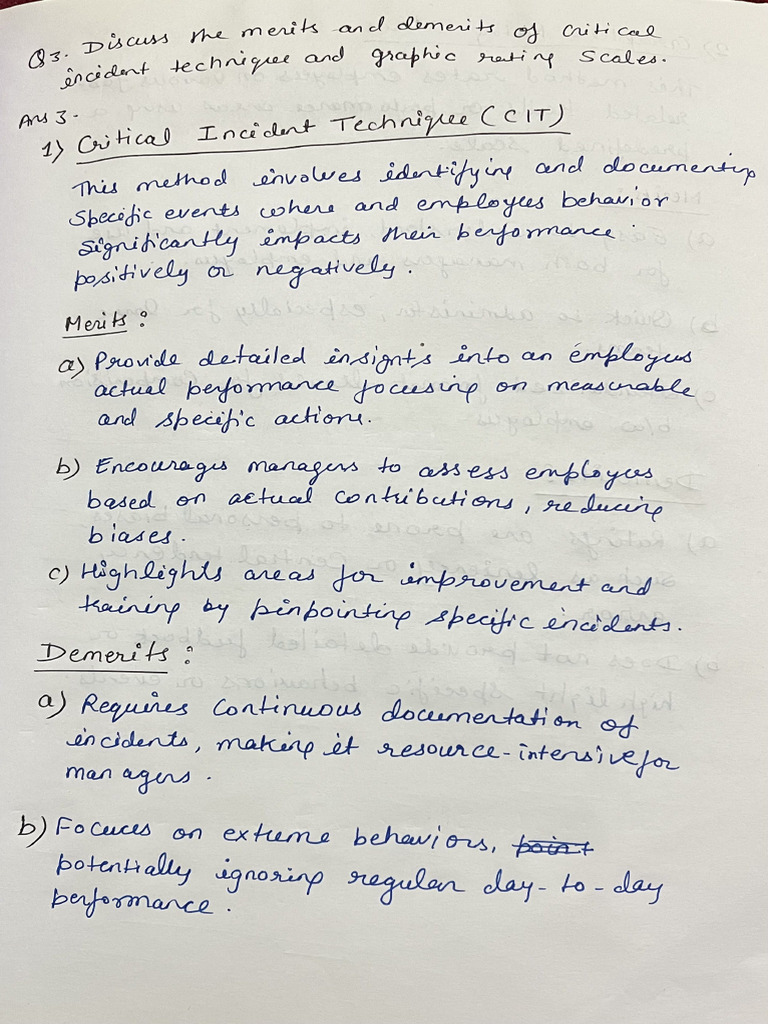 Q3. Discuss the merits and demerits of critical
incident technique and graphic rating scales.
Ans 3.
1) Critical Incident Technique (CIT)
This method involves identifying and documenting
specific events where and employees behavior
significantly impacts their performance :
positively or negatively.
Merits :
a) Provide detailed insights into an employees
actual performance focusing on measurable
and specific actions.
b) Encourages managers to assess employees
based on actual contributions, reducing
biases.
c) Highlights areas for improvement and
training by pinpointing specific incidents.
Demerits :
a) Requires continuous documentation of
incidents, making it resource-intensive for
managers.
b) Focuces on extreme behaviors, point
potentially ignoring regular day-to-day
performance.